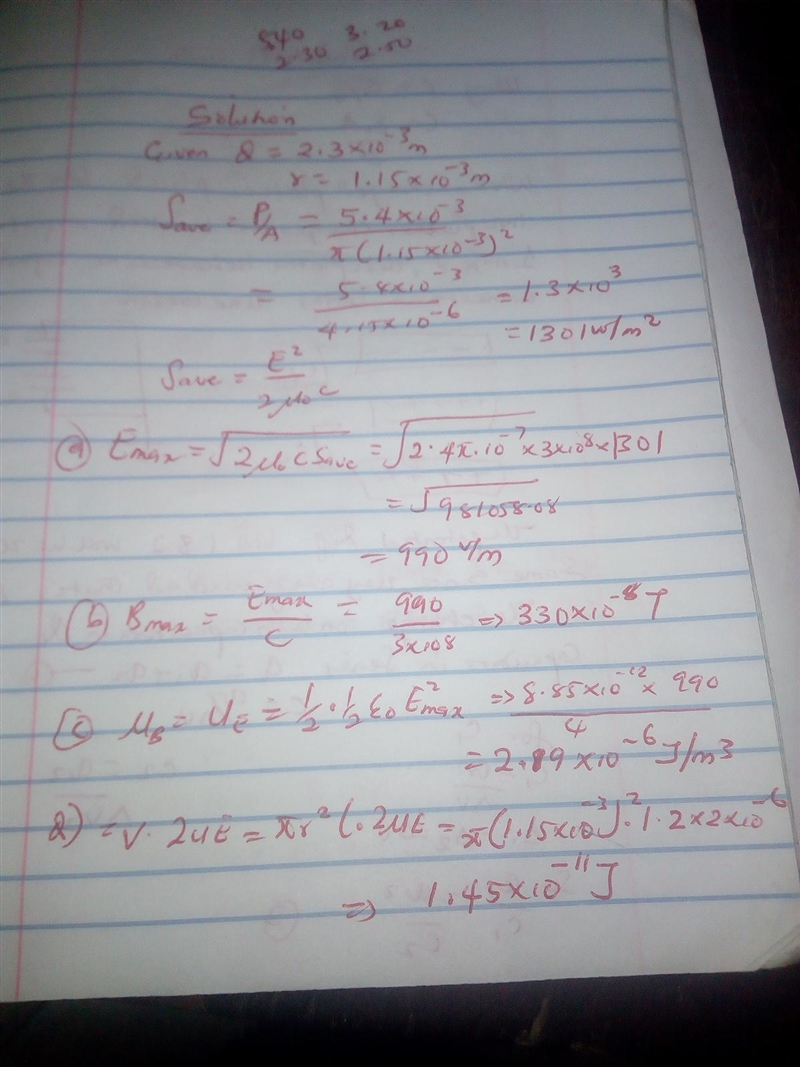 540 3.20
2.30 2.50
Solution
Given Q = 2.3×10⁻³m
r = 1.15×10⁻³m
Save = P/A = 5.4×10⁻³ / π(1.15×10⁻³)²
= 5.4×10⁻³ / 4.15×10⁻⁶ = 1.3×10³
= 1301 w/m²
Save = E² / 2μ₀c
(a) Emax = √2μ₀cSave = √2.4π.10⁻⁷×3×10⁸×1301
= √981058.08
= 990 v/m
(b) Bmax = Emax / C = 990 / 3×108 => 330×10⁻⁸ T
(c) μB = UE = 1/2 . 1/2 ε₀ E²max => 8.85×10⁻¹² × 990 / 4
= 2.19×10⁻⁶ J/m3
2) = V. 2UE = πr²(.2ME = π(1.15×10⁻³)².1.2×2×10⁻⁶
=> 1.45×10⁻¹¹ J